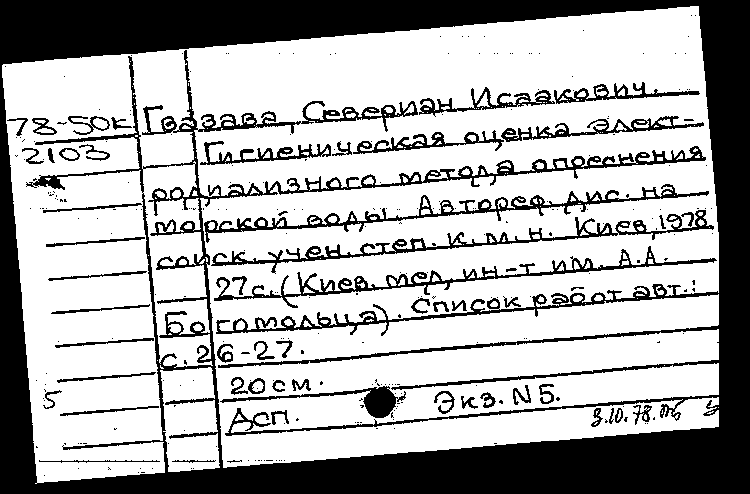 78-50к Гвазава, Севериан Исаакович.
2103 Гигиеническая оценка элект-
родиализного метода опреснения
морской воды. Автореф. дис. на
соиск. учен. степ. к. м. н. Киев, 1978
27с. (Киев. мед. ин-т им. А.А.
Богомольца). Список работ авт.:
с. 26-27.
20 см.
5 Дсп. Экз. N5.
3.10.78.